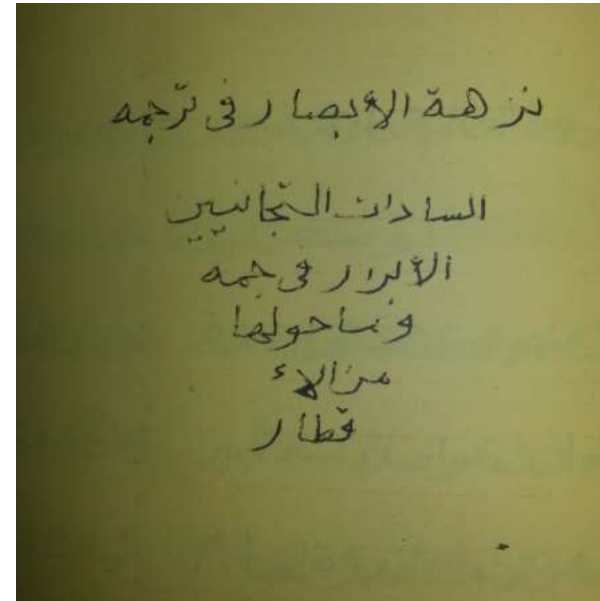 نزهة الأبصار في ترجمه
السادات التجانيين
الأبرار في جمه
وما حولها
من الاء
قطار